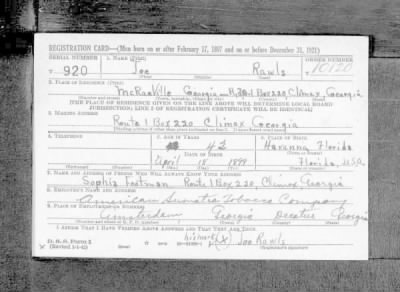 REGISTRATION CARD—(Men born on or after February 17, 1897 and on or before December 31, 1921)
SERIAL NUMBER 1. NAME (Print) ORDER NUMBER
T 920 Joe Rawls 10120
(First) (Middle) (Last)
2. PLACE OF RESIDENCE (Print)
Georgia Rt. 1 Box 220 Climax Georgia
[THE PLACE OF RESIDENCE GIVEN ON THE LINE ABOVE WILL DETERMINE LOCAL BOARD
JURISDICTION; LINE 2 OF REGISTRATION CERTIFICATE WILL BE IDENTICAL]
3. MAILING ADDRESS
Route 1 Box 220 Climax Georgia
4. TELEPHONE 5. AGE IN YEARS 6. PLACE OF BIRTH
42 Havanna Florida
DATE OF BIRTH
April 18 1899 Florida, USA
7. NAME AND ADDRESS OF PERSON WHO WILL ALWAYS KNOW YOUR ADDRESS
Sophia Route 1 Box 220 Climax Georgia
8. EMPLOYER'S NAME AND ADDRESS
American Sumatra Tobacco Company
9. PLACE OF EMPLOYMENT OR BUSINESS
Amsterdam Georgia Decatur Georgia
I AFFIRM THAT I HAVE VERIFIED ABOVE ANSWERS AND THAT THEY ARE TRUE.
D. S. S. Form 1
his mark (X) Joe Rawls